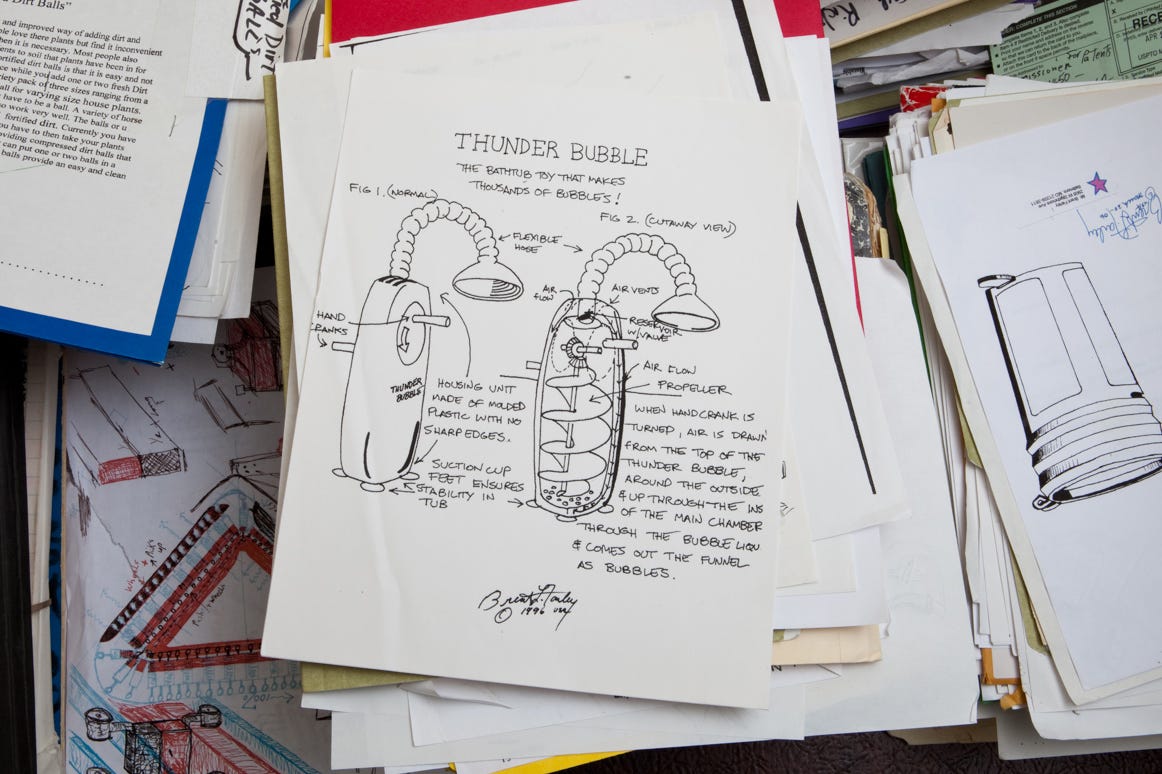 d Dirt Balls"
and improved way of adding dirt and
ble love there plants but find it inconvenient
hen it is necessary. Most people also
ents to soil that plants have been in for
ortified dirt balls is that it is easy and not
ce while you add one or two fresh Dirt
riety pack of three sizes ranging from a
all for varying size house plants.
have to be a ball. A variety of horse
o work very well. The balls or u
fortified dirt. Currently you have
you have to then take your plants
oviding compressed dirt balls that
can put one or two balls in a
balls provide an easy and clean
THUNDER BUBBLE
THE BATHTUB TOY THAT MAKES
THOUSANDS OF BUBBLES!
FIG 1. (NORMAL)
FIG 2. (CUTAWAY VIEW)
FLEXIBLE
HOSE
AIR
FLOW
AIR VENTS
HAND
CRANKS
RESERVOIR
W/VALVE
THUNDER
BUBBLE
AIR FLOW
PROPELLER
HOUSING UNIT
MADE OF MOLDED
PLASTIC WITH NO
SHARP EDGES.
SUCTION CUP
FEET ENSURES
STABILITY IN
TUB
WHEN HANDCRANK IS
TURNED, AIR IS DRAWN
FROM THE TOP OF THE
THUNDER BUBBLE,
AROUND THE OUTSIDE
& UP THROUGH THE INS
OF THE MAIN CHAMBER
THROUGH THE BUBBLE LIQU
& COMES OUT THE FUNNEL
AS BUBBLES.
© 1996
RECE
USPTO